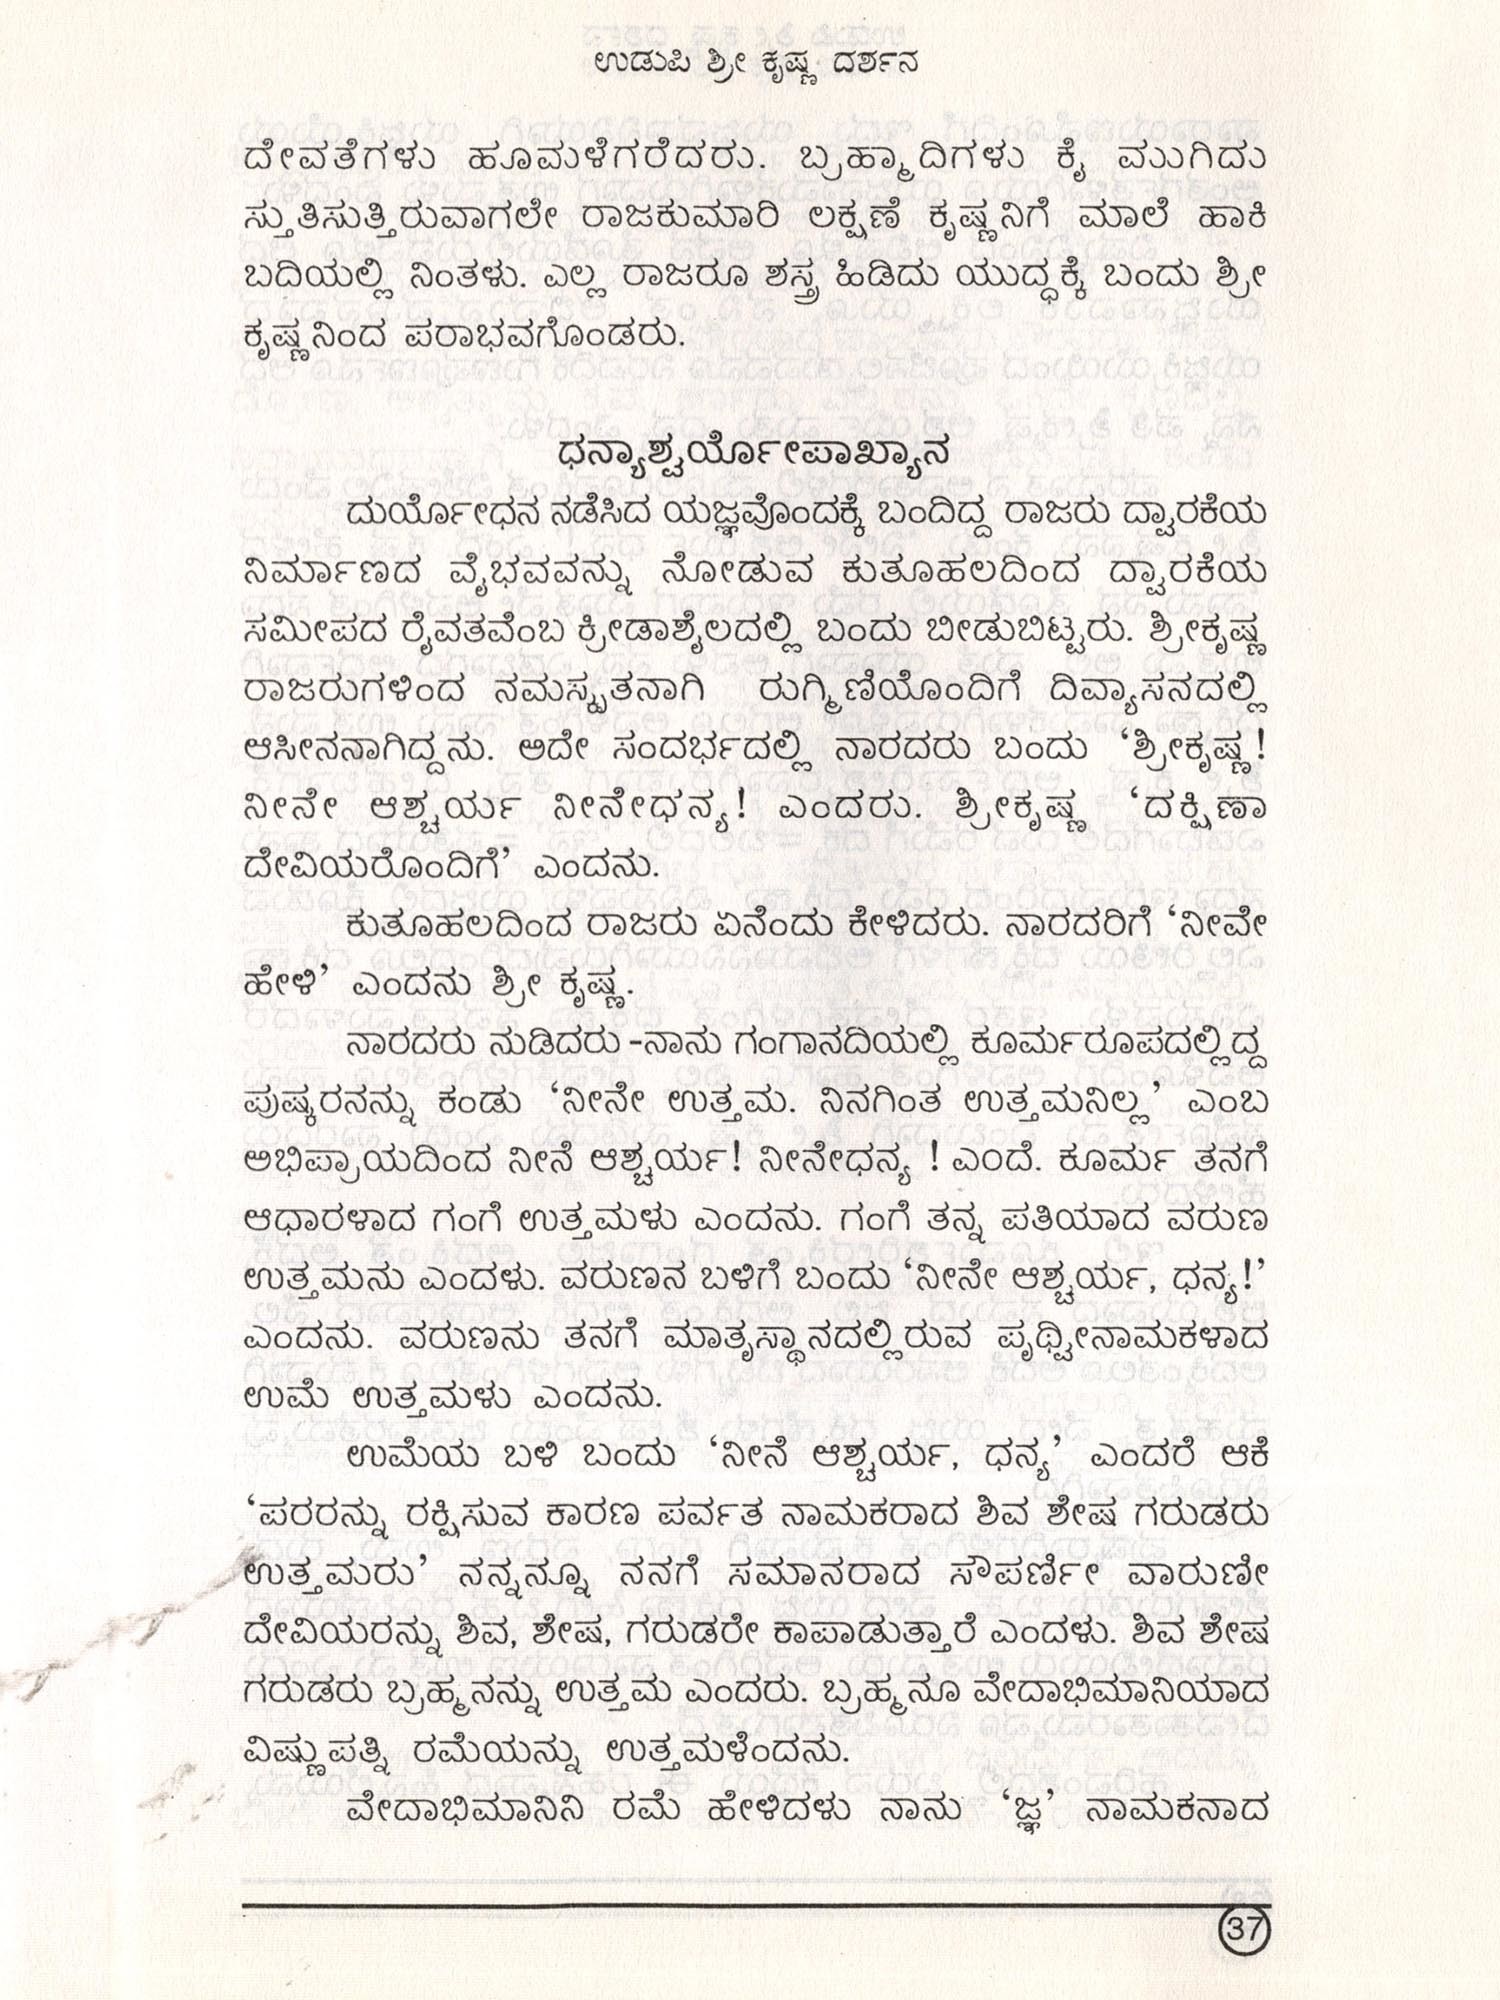 ಉಡುಪಿ ಶ್ರೀ ಕೃಷ್ಣ ದರ್ಶನ
ದೇವತೆಗಳು ಹೂಮಳೆಗರೆದರು. ಬ್ರಹ್ಮಾದಿಗಳು ಕೈ ಮುಗಿದು
ಸ್ತುತಿಸುತ್ತಿರುವಾಗಲೇ ರಾಜಕುಮಾರಿ ಲಕ್ಷಣೆ ಕೃಷ್ಣನಿಗೆ ಮಾಲೆ ಹಾಕಿ
ಬದಿಯಲ್ಲಿ ನಿಂತಳು. ಎಲ್ಲ ರಾಜರೂ ಶಸ್ತ್ರ ಹಿಡಿದು ಯುದ್ಧಕ್ಕೆ ಬಂದು ಶ್ರೀ
ಕೃಷ್ಣನಿಂದ ಪರಾಭವಗೊಂಡರು.
ಧನ್ಯಾಶ್ಚರ್ಯೋಪಾಖ್ಯಾನ
ದುರ್ಯೋಧನ ನಡೆಸಿದ ಯಜ್ಞವೊಂದಕ್ಕೆ ಬಂದಿದ್ದ ರಾಜರು ದ್ವಾರಕೆಯ
ನಿರ್ಮಾಣದ ವೈಭವವನ್ನು ನೋಡುವ ಕುತೂಹಲದಿಂದ ದ್ವಾರಕೆಯ
ಸಮೀಪದ ರೈವತವೆಂಬ ಕ್ರೀಡಾಶೈಲದಲ್ಲಿ ಬಂದು ಬೀಡುಬಿಟ್ಟರು. ಶ್ರೀಕೃಷ್ಣ
ರಾಜರುಗಳಿಂದ ನಮಸ್ಕೃತನಾಗಿ ರುಗ್ಮಿಣಿಯೊಂದಿಗೆ ದಿವ್ಯಾಸನದಲ್ಲಿ
ಆಸೀನನಾಗಿದ್ದನು. ಅದೇ ಸಂದರ್ಭದಲ್ಲಿ ನಾರದರು ಬಂದು ‘ಶ್ರೀಕೃಷ್ಣ!
ನೀನೇ ಆಶ್ಚರ್ಯ ನೀನೇಧನ್ಯ! ಎಂದರು. ಶ್ರೀಕೃಷ್ಣ ‘ದಕ್ಷಿಣಾ
ದೇವಿಯರೊಂದಿಗೆ’ ಎಂದನು.
ಕುತೂಹಲದಿಂದ ರಾಜರು ಏನೆಂದು ಕೇಳಿದರು. ನಾರದರಿಗೆ ‘ನೀವೇ
ಹೇಳಿ’ ಎಂದನು ಶ್ರೀ ಕೃಷ್ಣ.
ನಾರದರು ನುಡಿದರು -ನಾನು ಗಂಗಾನದಿಯಲ್ಲಿ ಕೂರ್ಮರೂಪದಲ್ಲಿದ್ದ
ಪುಷ್ಕರನನ್ನು ಕಂಡು ‘ನೀನೇ ಉತ್ತಮ. ನಿನಗಿಂತ ಉತ್ತಮನಿಲ್ಲ’ ಎಂಬ
ಅಭಿಪ್ರಾಯದಿಂದ ನೀನೆ ಆಶ್ಚರ್ಯ! ನೀನೇಧನ್ಯ ! ಎಂದೆ. ಕೂರ್ಮ ತನಗೆ
ಆಧಾರಳಾದ ಗಂಗೆ ಉತ್ತಮಳು ಎಂದನು. ಗಂಗೆ ತನ್ನ ಪತಿಯಾದ ವರುಣ
ಉತ್ತಮನು ಎಂದಳು. ವರುಣನ ಬಳಿಗೆ ಬಂದು ‘ನೀನೇ ಆಶ್ಚರ್ಯ, ಧನ್ಯ!’
ಎಂದನು. ವರುಣನು ತನಗೆ ಮಾತೃಸ್ಥಾನದಲ್ಲಿರುವ ಪೃಥ್ವೀನಾಮಕಳಾದ
ಉಮೆ ಉತ್ತಮಳು ಎಂದನು.
ಉಮೆಯ ಬಳಿ ಬಂದು ‘ನೀನೆ ಆಶ್ಚರ್ಯ, ಧನ್ಯ’ ಎಂದರೆ ಆಕೆ
‘ಪರರನ್ನು ರಕ್ಷಿಸುವ ಕಾರಣ ಪರ್ವತ ನಾಮಕರಾದ ಶಿವ ಶೇಷ ಗರುಡರು
ಉತ್ತಮರು’ ನನ್ನನ್ನೂ ನನಗೆ ಸಮಾನರಾದ ಸೌಪರ್ಣೀ ವಾರುಣೀ
ದೇವಿಯರನ್ನು ಶಿವ, ಶೇಷ, ಗರುಡರೇ ಕಾಪಾಡುತ್ತಾರೆ ಎಂದಳು. ಶಿವ ಶೇಷ
ಗರುಡರು ಬ್ರಹ್ಮನನ್ನು ಉತ್ತಮ ಎಂದರು. ಬ್ರಹ್ಮನೂ ವೇದಾಭಿಮಾನಿಯಾದ
ವಿಷ್ಣುಪತ್ನಿ ರಮೆಯನ್ನು ಉತ್ತಮಳೆಂದನು.
ವೇದಾಭಿಮಾನಿನಿ ರಮೆ ಹೇಳಿದಳು ನಾನು ‘ಜ್ಞ’ ನಾಮಕನಾದ
37